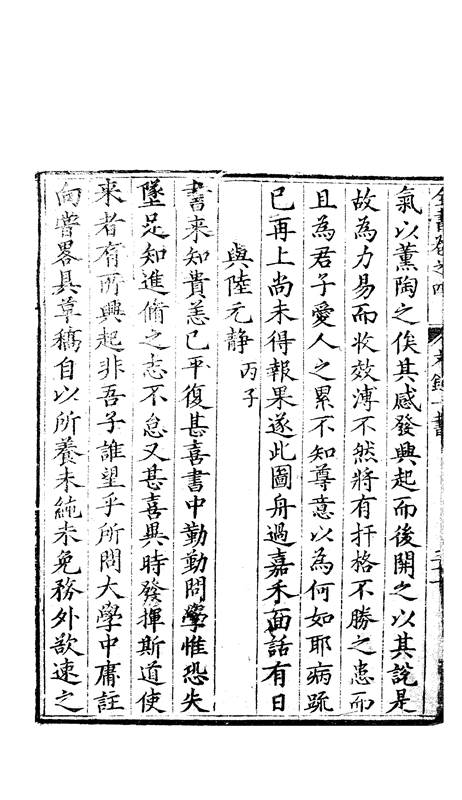 全書卷之四
氣以薰陶之俟其感發興起而後開之以其說是
故為力易而收效溥不然將有扞格不勝之患而
且為君子愛人之累不知尊意以為何如耶病䟽
已再上尚未得報果遂此圖舟過嘉禾面話有日
與陸元靜 丙子
書來知貴恙已平復甚喜書中勤勤問學惟恐失
墜足知進脩之志不怠又甚喜異時發揮斯道使
來者有所興起非吾子誰望乎所問大學中庸註
向嘗畧具草稿自以所養未純未免務外欲速之